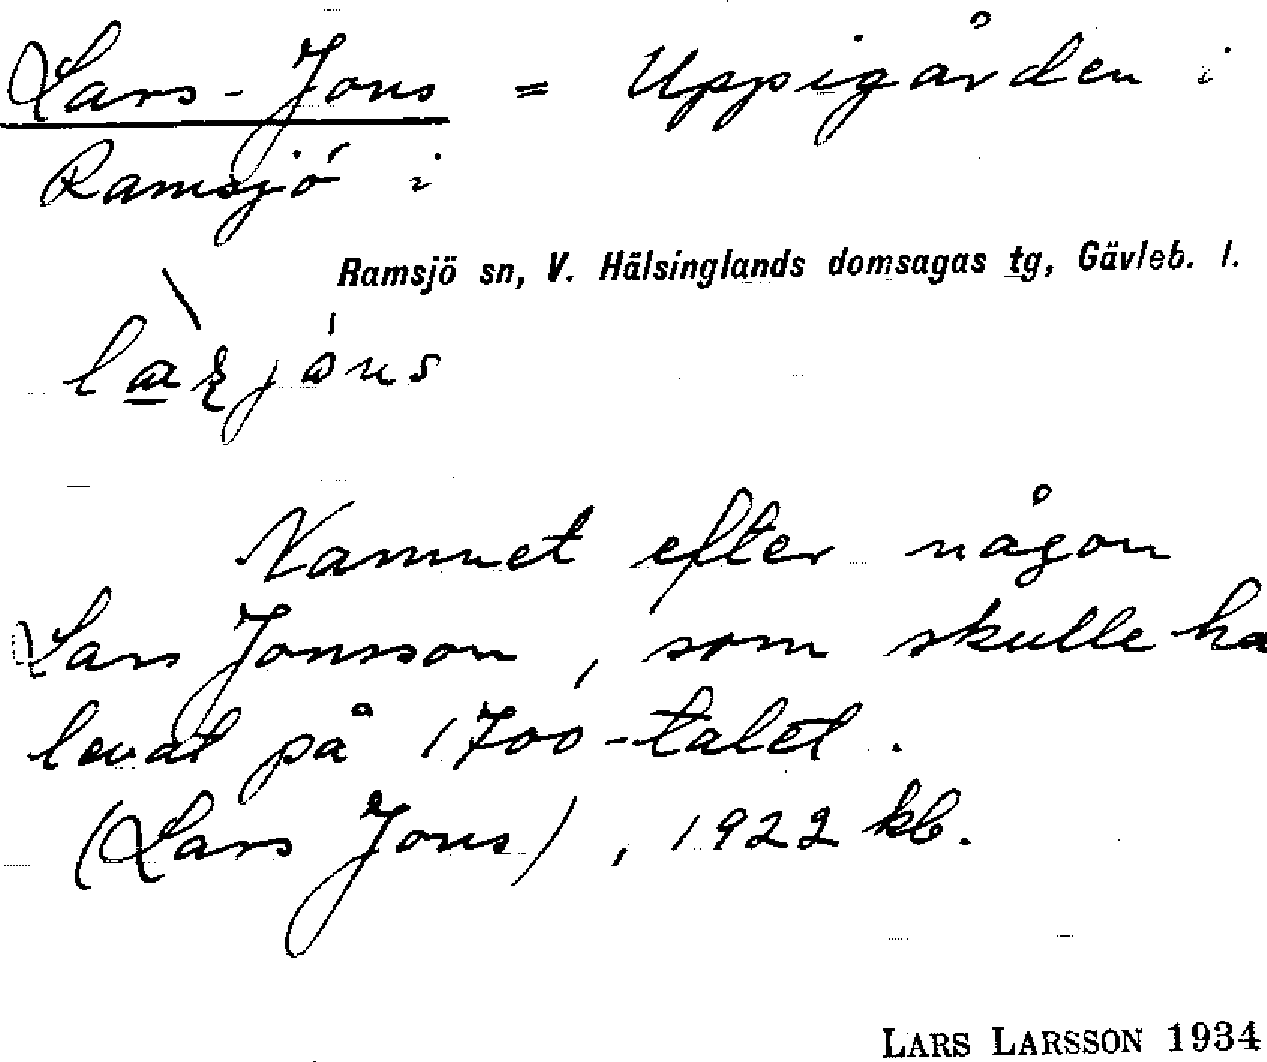 Lars-Jons = Uppigården i
Ramsjö i
Ramsjö sn, V. Hälsinglands domsagas tg, Gävleb. l.
Namnet efter någon
Lars Jonsson, som skulle ha
levat på 1700-talet.
(Lars Jons), 1922 kb.
LARS LARSSON 1934